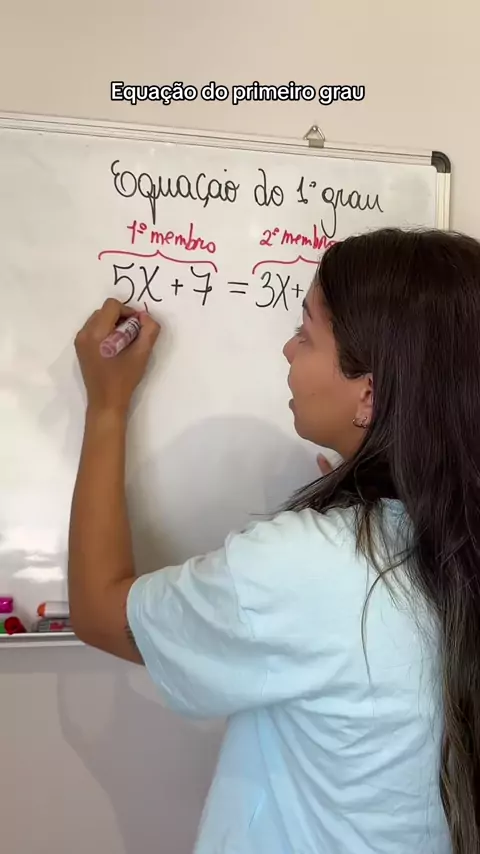 Equação do primeiro grau
Equação do 1º grau
1º membro 2º membro
5x + 7 = 3x +